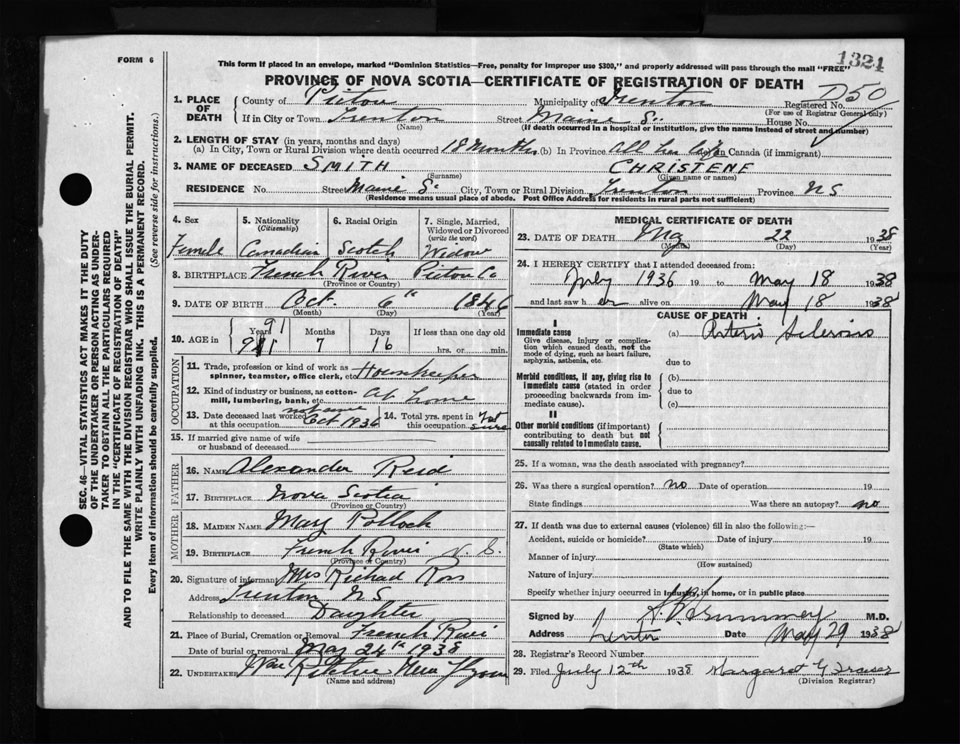 FORM 6
This form if placed in an envelope, marked "Dominion Statistics—Free, penalty for improper use $300," and properly addressed will pass through the mail "FREE"
1324
PROVINCE OF NOVA SCOTIA—CERTIFICATE OF REGISTRATION OF DEATH
D50
SEC. 46—VITAL STATISTICS ACT MAKES IT THE DUTY
OF THE UNDERTAKER OR PERSON ACTING AS UNDER-
TAKER TO OBTAIN ALL THE PARTICULARS REQUIRED
IN THE "CERTIFICATE OF REGISTRATION OF DEATH"
AND TO FILE THE SAME WITH THE DIVISION REGISTRAR WHO SHALL ISSUE THE BURIAL PERMIT.
WRITE PLAINLY WITH UNFADING INK. THIS IS A PERMANENT RECORD.
Every item of information should be carefully supplied. (See reverse side for instructions.)
1. PLACE OF DEATH County of Pictou Municipality of Trenton Registered No.
(For use of Registrar General only)
If in City or Town Trenton Street Maine St. House No.
(Name) (If death occurred in a hospital or institution, give the name instead of street and number)
2. LENGTH OF STAY (in years, months and days)
(a) In City, Town or Rural Division where death occurred 18 Months (b) In Province All her life in Canada (if immigrant)
3. NAME OF DECEASED SMITH CHRISTENE
(Surname) (Given name or names)
RESIDENCE No. Street Maine St City, Town or Rural Division Trenton Province NS
(Residence means usual place of abode. Post Office Address for residents in rural parts not sufficient)
4. Sex 5. Nationality 6. Racial Origin 7. Single, Married,
(Citizenship) Widowed or Divorced
(write the word)
Female Canadian Scotch Widow
8. BIRTHPLACE French River Pictou Co
(Province or Country)
9. DATE OF BIRTH Oct. 6th 1846
(Month) (Day) (Year)
10. AGE in Years 91 Months 7 Days 16 If less than one day old
hrs. or min.
OCCUPATION
11. Trade, profession or kind of work as spinner, teamster, office clerk, etc. Housekeeper
12. Kind of industry or business, as cotton-mill, lumbering, bank, etc. At home
13. Date deceased last worked at this occupation not sure Oct 1936 14. Total yrs. spent in this occupation Not sure
15. If married give name of wife or husband of deceased
FATHER
16. NAME Alexander Reid
17. BIRTHPLACE Nova Scotia
(Province or Country)
MOTHER
18. MAIDEN NAME Mary Pollock
19. BIRTHPLACE French River N. S.
(Province or Country)
20. Signature of informant Mrs Richard Ross
Address Trenton NS
Relationship to deceased Daughter
21. Place of Burial, Cremation or Removal French River
Date of burial or removal May 24th 1938
22. UNDERTAKER
(Name and address)
MEDICAL CERTIFICATE OF DEATH
23. DATE OF DEATH 22 1938
(Month) (Day) (Year)
24. I HEREBY CERTIFY that I attended deceased from:
July 1936 19 to May 18 1938
and last saw her alive on May 18 1938
CAUSE OF DEATH
I
Immediate cause (a) Arterio Sclerosis
Give disease, injury or complication which caused death, not the mode of dying, such as heart failure, asphyxia, asthenia, etc.
due to
Morbid conditions, if any, giving rise to immediate cause (stated in order proceeding backwards from immediate cause). (b)
due to
(c)
II
Other morbid conditions (if important) contributing to death but not causally related to immediate cause.
25. If a woman, was the death associated with pregnancy?
26. Was there a surgical operation? no Date of operation 19
State findings Was there an autopsy? no
27. If death was due to external causes (violence) fill in also the following:—
Accident, suicide or homicide? Date of injury 19
(State which)
Manner of injury
(How sustained)
Nature of injury
Specify whether injury occurred in Industry, in home, or in public place
Signed by M.D.
Address Trenton Date May 29 1938
28. Registrar's Record Number
29. Filed July 12th 1938 Margaret G Fraser
(Division Registrar)